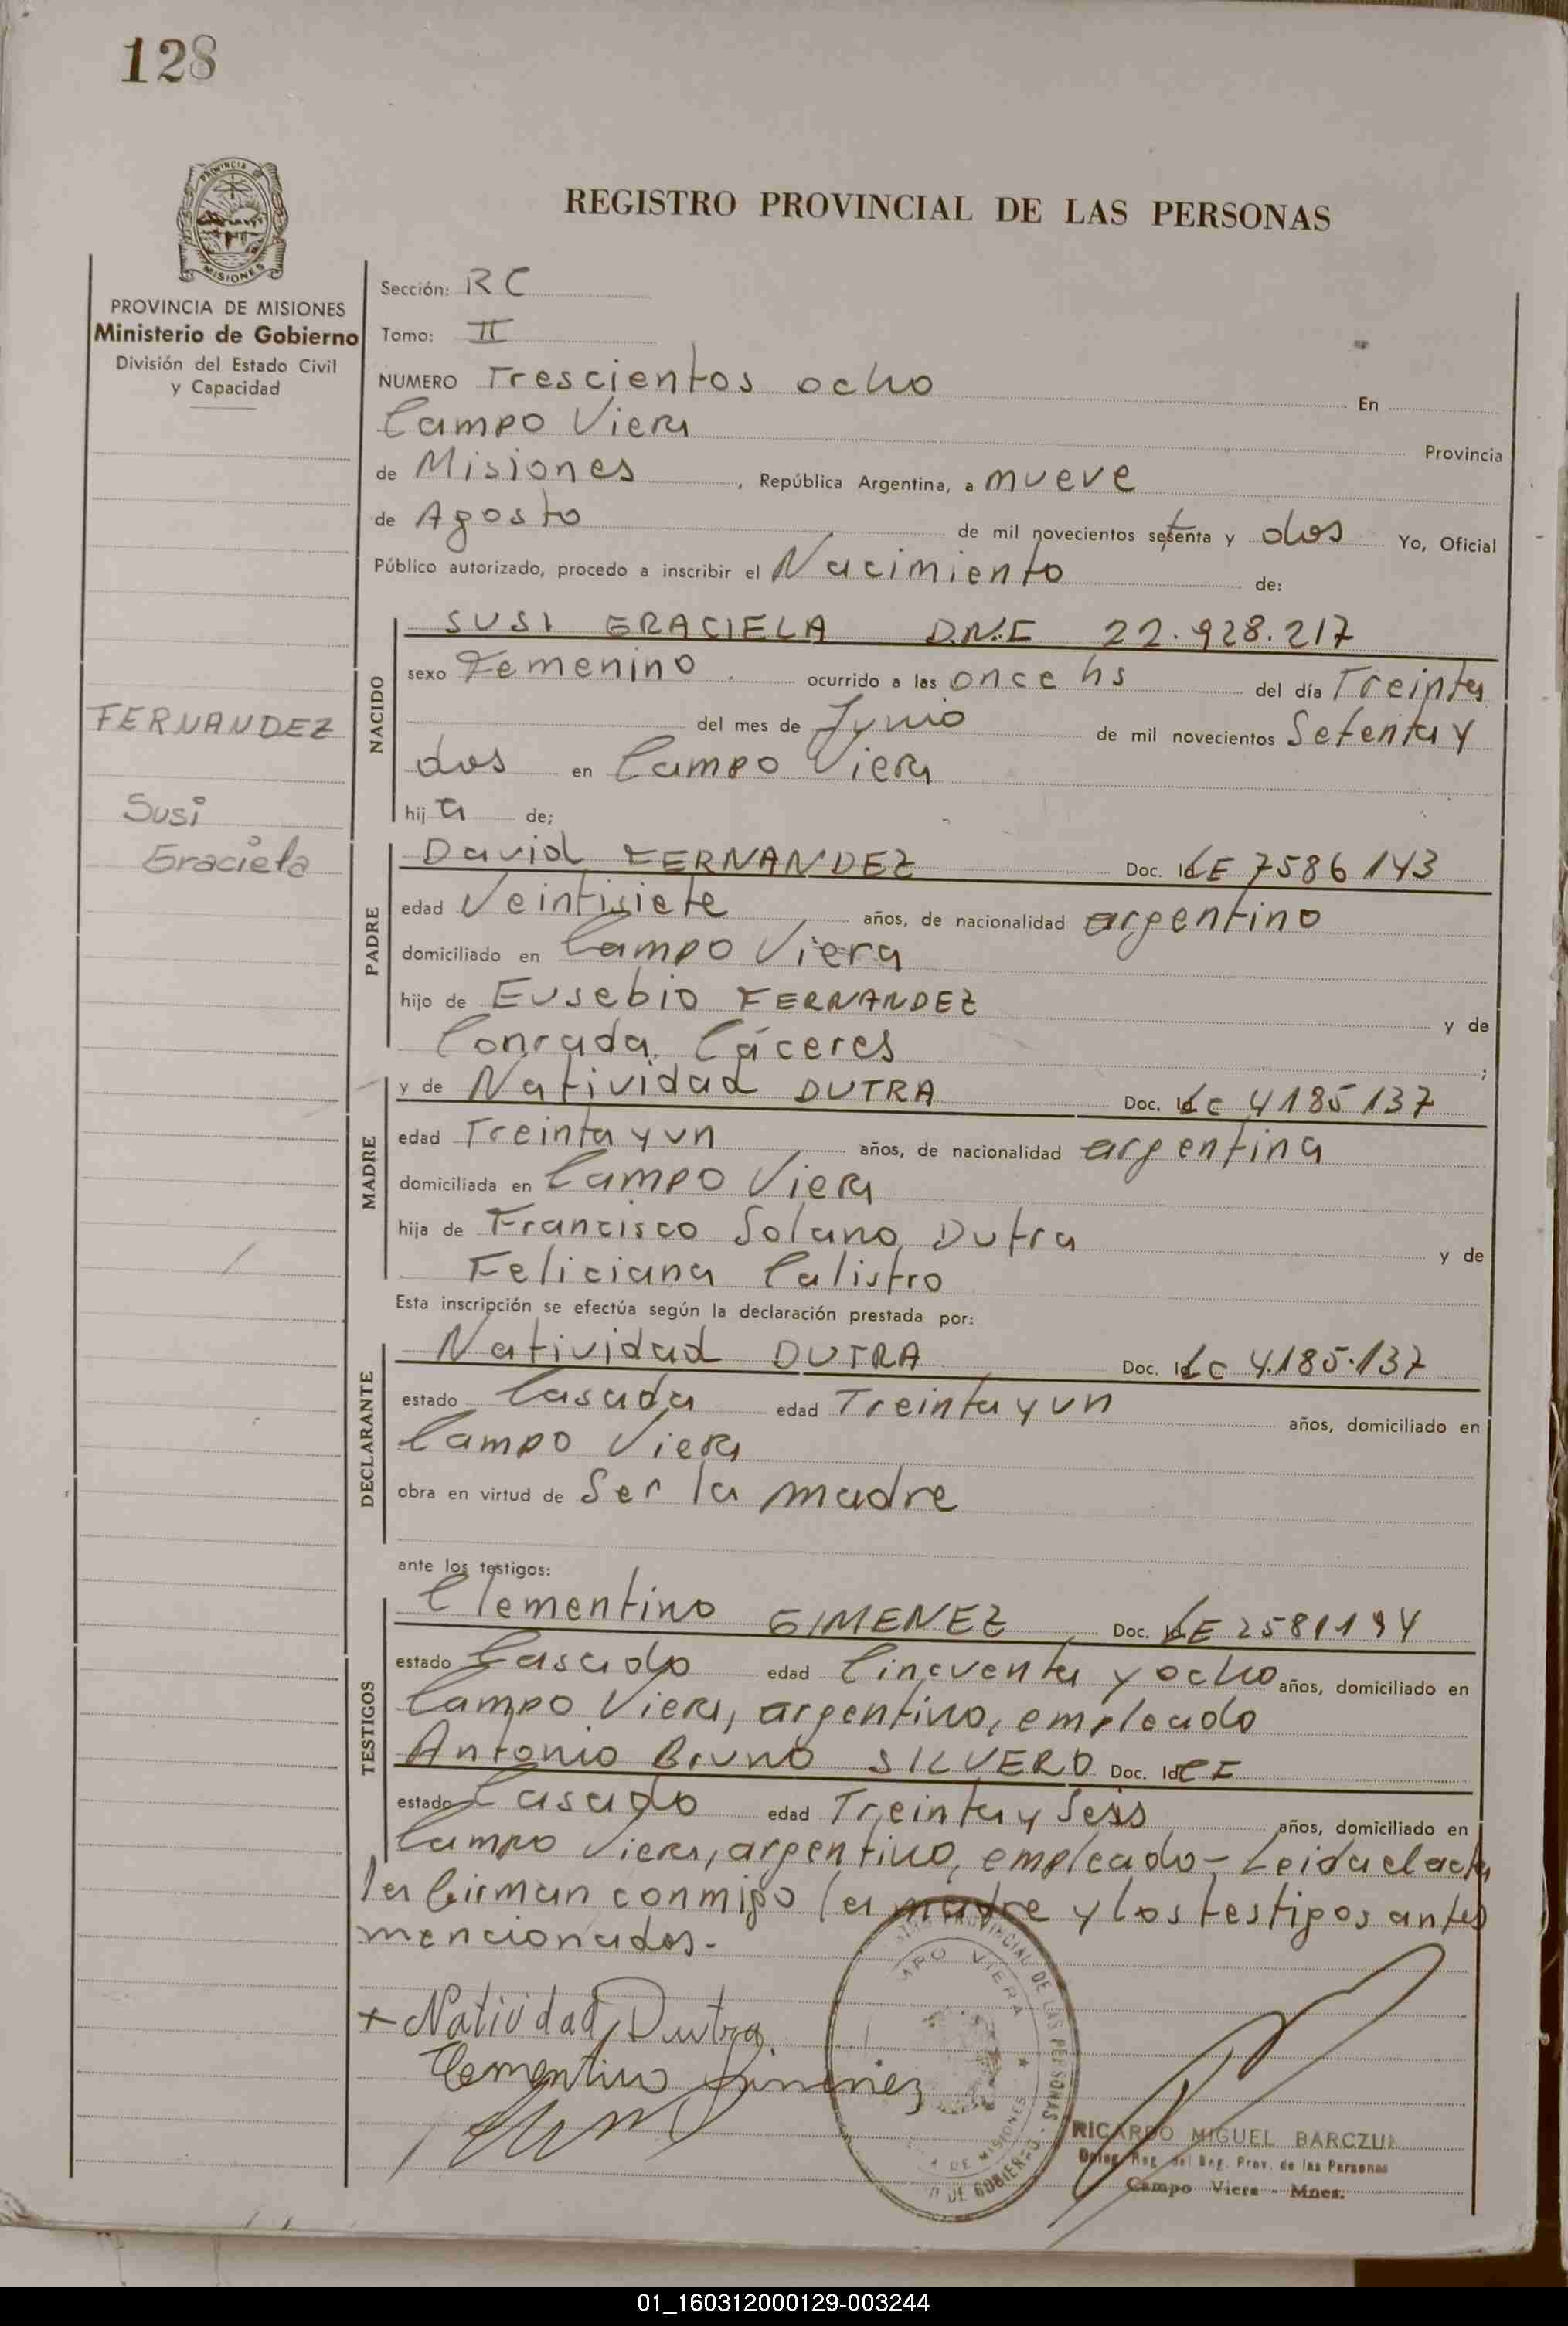 128
PROVINCIA
MISIONES
REGISTRO PROVINCIAL DE LAS PERSONAS
PROVINCIA DE MISIONES
Ministerio de Gobierno
División del Estado Civil
y Capacidad
Sección: RC
Tomo: II
NUMERO Trescientos ocho En
Campo Viera Provincia
de Misiones, República Argentina, a nueve
de Agosto de mil novecientos setenta y dos Yo, Oficial
Público autorizado, procedo a inscribir el Nacimiento de:
FERNANDEZ
Susi
Graciela
NACIDO
SUSI GRACIELA D.N.I 22.928.217
sexo Femenino. ocurrido a las once hs del día Treinta
del mes de Junio de mil novecientos Setenta y
dos en Campo Viera
hij a de;
PADRE
David FERNANDEZ Doc. Id LE 7586143
edad Veintisiete años, de nacionalidad argentino
domiciliado en Campo Viera
hijo de Eusebio FERNANDEZ y de
Conrada Cáceres ;
MADRE
y de Natividad DUTRA Doc. Id LC 4185137
edad Treinta y un años, de nacionalidad argentina
domiciliada en Campo Viera
hija de Francisco Solano Dutra y de
Feliciana Calistro
Esta inscripción se efectúa según la declaración prestada por:
DECLARANTE
Natividad DUTRA Doc. Id LC 4.185.137
estado Casada edad Treinta y un años, domiciliado en
Campo Viera
obra en virtud de Ser la madre
ante los testigos:
TESTIGOS
Clementino GIMENEZ Doc. Id LE 2581194
estado Casado edad Cincuenta y ocho años, domiciliado en
Campo Viera, argentino, empleado
Antonio Bruno SILVERO Doc. Id CI
estado Casado edad Treinta y Seis años, domiciliado en
Campo Viera, argentino, empleado - Leida el acta
la firman conmigo la madre y los testigos antes
mencionados.-
+ Natividad Dutra
Clementino Jimenez
PROVINCIAL DE LAS PERSONAS
CAMPO VIERA
DE MISIONES
DE GOBIERNO
RICARDO MIGUEL BARCZUK
Deleg. Reg. del Reg. Prov. de las Personas
Campo Viera - Mnes.
01_160312000129-003244